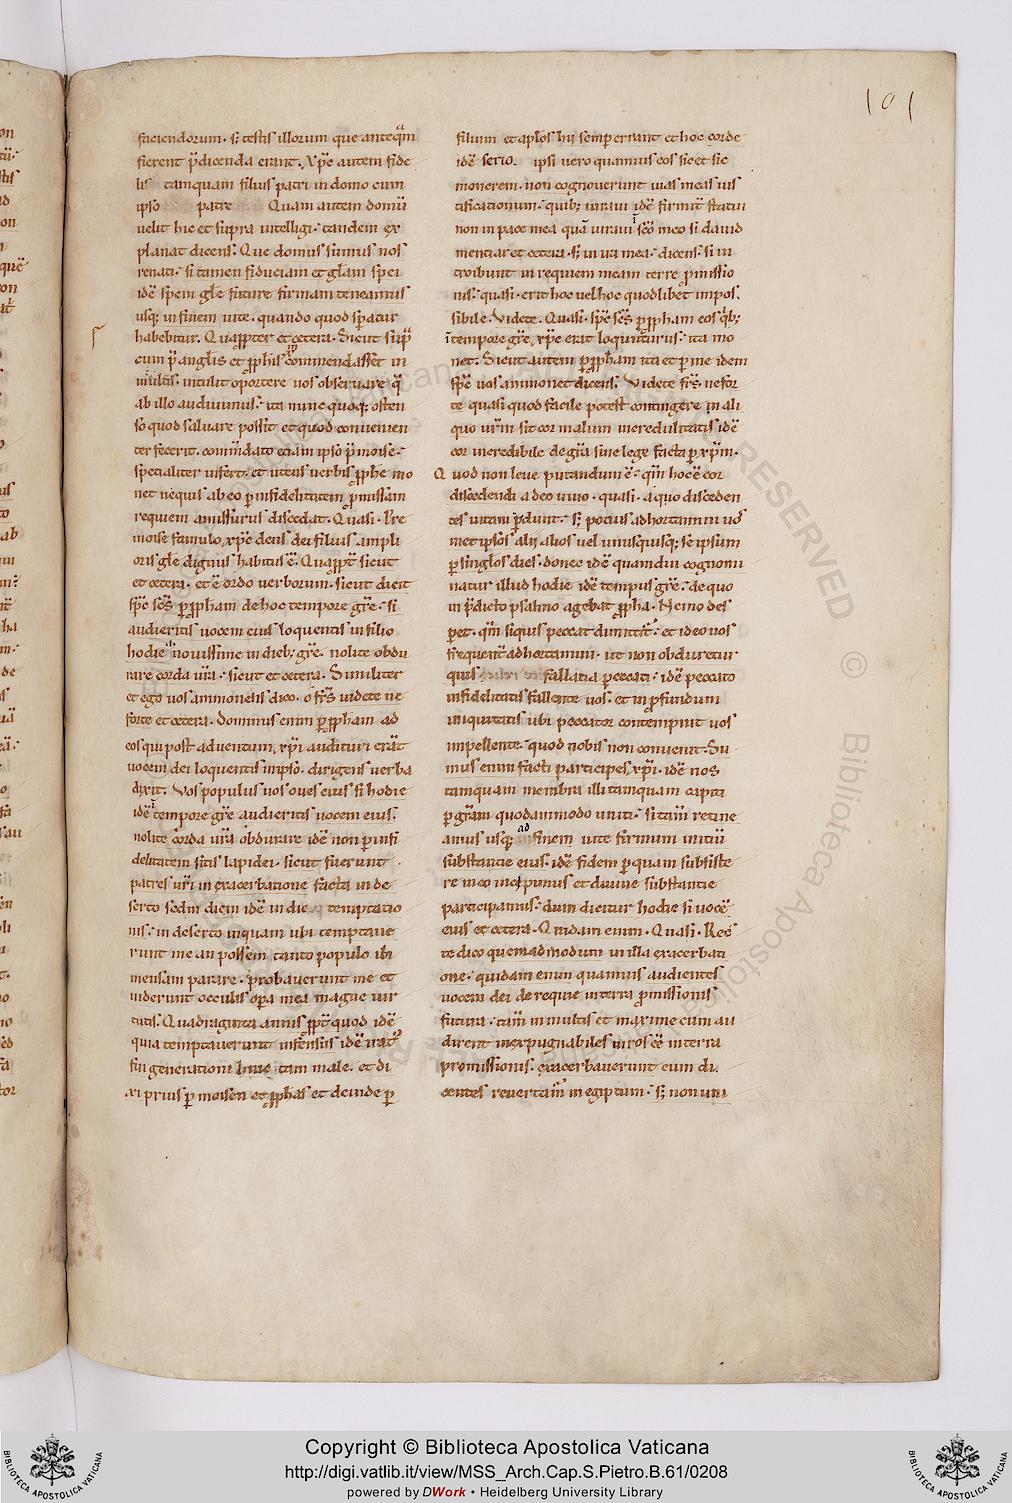 101
faciendorum. s; testis illorum que anteqm̄
fierent p̄dicenda erant. Xp̄c autem fide
lis tamquam filius patri in domo cum
ipso patre Quam autem domū
uelit hic et supra intelligi. tandem ex
planat dicens. Que domus sumus nos
renati. si tamen fiduciam et gl̄am spei
idē spem gl̄e future firmam teneamus
usq; in finem uite. quando quod speratur
habebitur. Quapp̄ter et cetera. Sicut sup̄
cum p̄ angelis et pphis cōmendasset in
multis. intulit oportere nos obseruare q̄
ab illo audiuimus. ita nunc quoq; osten
so quod saluare possit et quod conuenien
ter fecerit. commdato etiam ipso p̄ moise.
specialiter infert. et utens uerbis pphe mo
net nequis ab eo p infidelitatem pmissam
requiem amissurus discedat. Quasi. Pre
moise famulo xp̄c deus dei filius ampli
oris gl̄e dignus habitus ē. Quapp̄t sicut
et cetera. et ē ordo uerborum. sicut dicit
sp̄c sc̄s p ppham de hoc tempore gr̄e. si
audieritis uocem eius loquentis in filio
hodie .i. nouissime in dieb; gr̄e. nolite obdu
rare corda ur̄a. sicut et cetera. Similiter
et ego uos ammonens dico. o fr̄s uidete ne
forte et cetera. Dominus enim p ppham ad
eos qui post aduentum xp̄i audituri erāt
uocem dei loquentis in ipso. dirigens uerba
dixit. Vos populus uos oues eius si hodie
idē ī tempore gr̄e audieritis uocem eius.
nolite corda ur̄a obdurare idē non p infi
delitatem sitis lapidei. sicut fuerunt
patres ur̄i in exacerbatione facta in de
serto scdm diem idē in die temptatio
nis. in deserto inquam ubi temptaue
runt me an possem tanto populo ibi
mensam parare. probauerunt me et
uiderunt occulis op̄a mea magne uir
tutis. Quadraginta annis ppt̄ quod idē
quia temptauerunt infensus idē irat᷒
fui generationi huic tam male. et di
xi prius p moisen et pphas et deinde p
filium et apl̄os hii semper errant et hoc corde
idē serio. ipsi uero quamuis eos sic et sic
monerem. non cognouerunt uias meas ius
tificationum. quib; iuraui idē firmit̄ statui
non in pace mea quā iuraui ī sc̄o meo si dauid
mentiar et cetera. s; in ira mea. dicens. si in
troibunt in requiem meam terre pmissio
nis. quasi. erit hoc uel hoc quodlibet impos
sibile. Videte. Quasi. sp̄c sc̄s p ppham eos q̄b;
ī tempore gr̄e, xp̄c erat loquiturus. ita mo
net. Sicut autem p ppham ita et p me idem
sp̄c uos ammonet dicens. Videte fr̄s. ne for
te quasi quod facile potest contingere in ali
quo ur̄m sit cor malum incredulitatis idē
cor incredibile de gr̄a sine lege facta p xp̄m.
Quod non leue putandum ē. qm̄ hoc ē cor
discedendi a deo uiuo. quasi. a quo disceden
tes uitam pdunt. s; pocius adhortamini uos
met ipsos alii alios uel unusquisq; se ipsum
p singlōs dies. donec idē quamdiu cognomi
natur illud hodie idē tempus gr̄e. de quo
in p̄dicto psalmo agebat ppha. Nemo des
peret. qm̄ siquis peccat dimittit̄. et ideo uos
frequent̄ adhortamini. ut non obduretur
quis fallatia peccati. idē peccato
infidelitatis fallente uos. et in profundum
iniquitatis ubi peccator contempnit uos
impellente. quod nobis non conuenit. Su
mus enim facti participes xp̄i. idē nos
tamquam membra illi tamquam capiti
p gr̄am quodammodo uniti. si tam̄ retine
amus usq; ad finem uite firmum initiū
substantie eius. idē fidem p quam subsiste
re in eo incepimus et diuine substantie
participamus. dum dicitur hodie si uocē
eius et cetera. Quidam enim. Quasi. Rec
te dico quemadmodum in illa exacerbati
one. quidam enim quamuis audientes
uocem dei de requie in terra pmissionis
futura. tam̄ in multis et maxime cum au
dirent inexpugnabiles uiros eē in terra
promissionis. exacerbauerunt eum di
centes reuertam᷒ in egiptum. s; non uni
Copyright © Biblioteca Apostolica Vaticana
http://digi.vatlib.it/view/MSS_Arch.Cap.S.Pietro.B.61/0208
powered by DWork • Heidelberg University Library